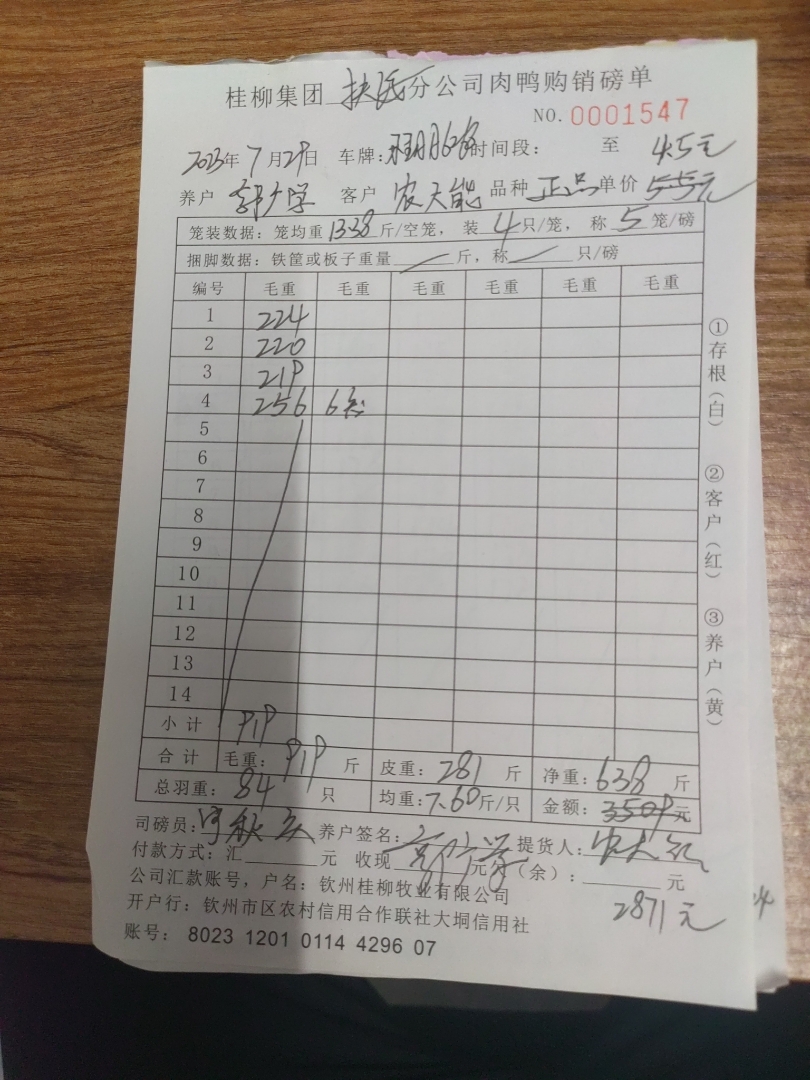 桂柳集团 分公司肉鸭购销磅单
NO. 0001547
2023年7月29日 车牌: 时间段: 至 4.5元
养户 郭广学 客户 农天能 品种 正品 单价 5.5元
笼装数据: 笼均重 13.38 斤/空笼, 装 4 只/笼, 称 5 笼/磅
捆脚数据: 铁筐或板子重量 斤, 称 只/磅
编号 毛重 毛重 毛重 毛重 毛重 毛重
1 224
2 220
3 219
4 256 6笼
5
6
7
8
9
10
11
12
13
14
小计 919
合计 毛重: 919 斤 皮重: 281 斤 净重: 638 斤
总羽重: 84 只 均重: 7.60 斤/只 金额: 3509元
司磅员: 养户签名: 郭广学 提货人: 农天能
付款方式: 汇 元 收现 元欠(余): 元
公司汇款账号, 户名: 钦州桂柳牧业有限公司
2871元
开户行: 钦州市区农村信用合作联社大垌信用社
账号: 8023 1201 0114 4296 07
①存根(白)
②客户(红)
③养户(黄)